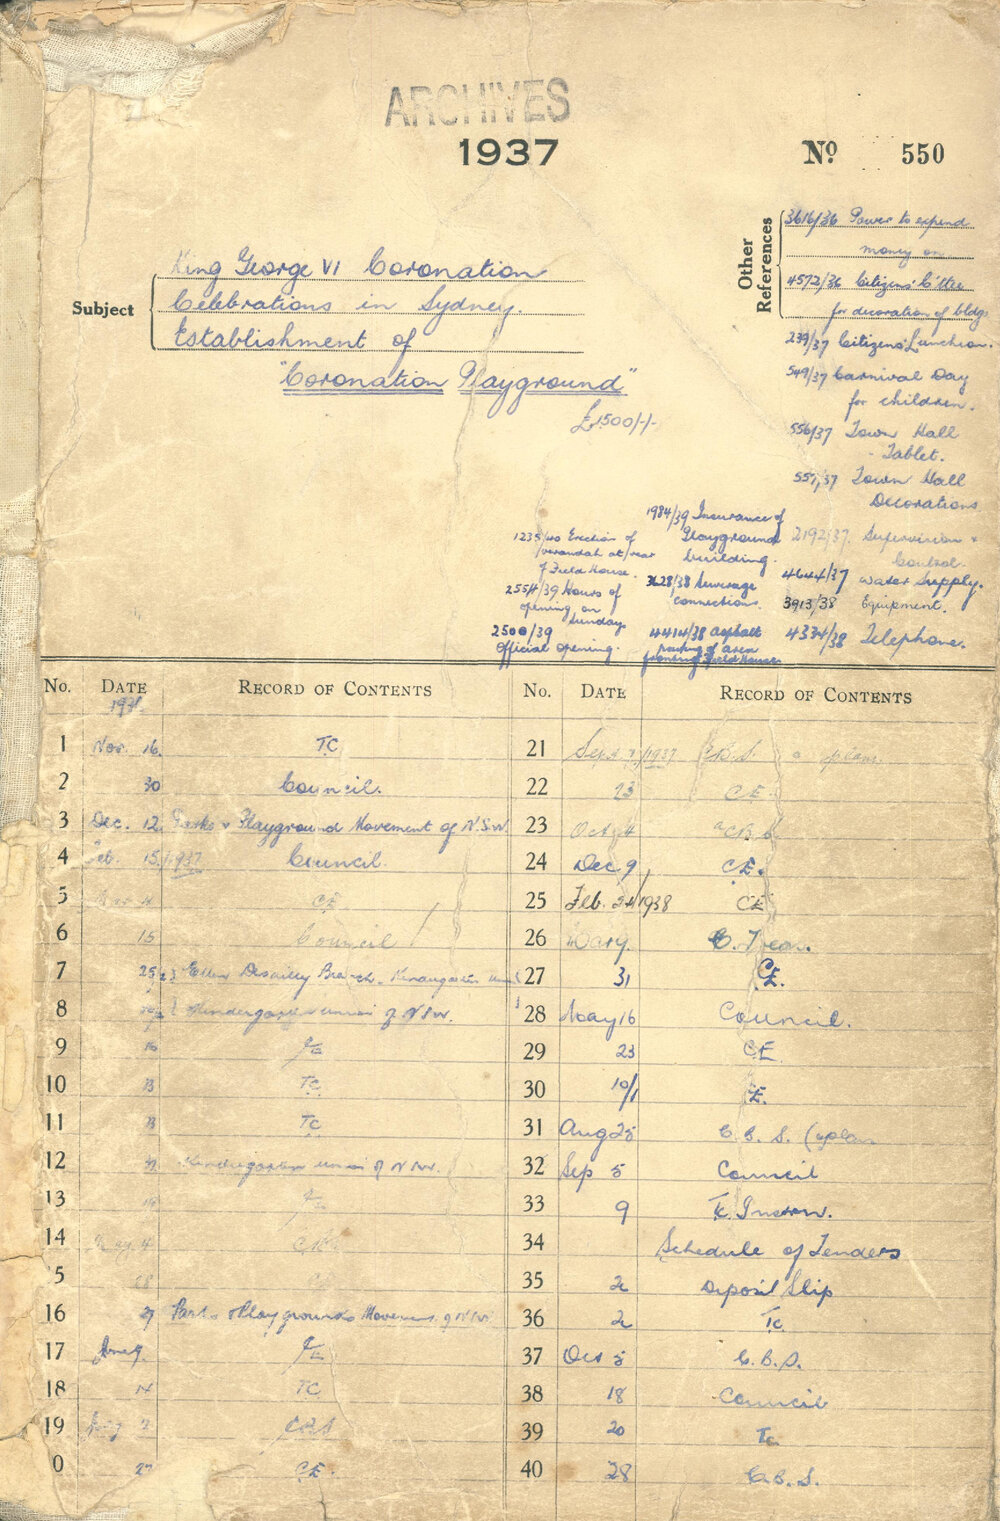 ARCHIVES
1937
No 550
Subject
King George VI Coronation
Celebrations in Sydney.
Establishment of
"Coronation Playground"
£1500/-/-
Other References
3616/36 Power to expend
money on
4572/36 Citizens' C'ttee
for decoration of bldgs
239/37 Citizens' Luncheon.
549/37 Carnival Day
for children.
556/37 Town Hall
Tablet.
557/37 Town Hall
Decorations
2192/37. Supervision &
Control.
4644/37 Water Supply.
3913/38 Equipment.
4334/38 Telephone.
1984/39 Insurance of
Playground
building.
3628/38 Sewerage
connections.
4414/38 Asphalt
parking of area
fronting Field House
1235/40 Erection of
verandah at rear
of Field House.
2554/39 Hours of
opening on
Sunday.
2500/39
official opening.
No. DATE RECORD OF CONTENTS
1 Nov. 16. TC
2 30 Council.
3 Dec. 12. Parks & Playground Movement of N.S.W.
4 Feb. 15/1937 Council.
5 CE
6 15 Council
7 25 Branch Kindergarten
8 Kindergarten Union of NSW.
9 16
10 13 TC
11 13 TC
12 Kindergarten Union of NSW.
13
14 4
5 28
16 27 Parks & Playgrounds Movement of NSW
17 June 9.
18 14 TC
19 CBS
0 27 CE.
No. DATE RECORD OF CONTENTS
21 Sept 7/1937 C.B.S. & plan.
22 23 CE
23 Oct 4 CBS
24 Dec 9 C.E.
25 Feb. 24/1938 CE
26 Mar 9. C. Treas.
27 31 CE.
28 May 16 Council.
29 23 CE
30 10/1 CE.
31 Aug 25 C.B.S. (& plan
32 Sep 5 Council
33 9 Tc
34 Schedule of Tenders
35 2 Deposit Slip
36 2 Tc
37 Oct 5 C.B.S.
38 18 Council
39 20 Tc
40 28 C.B.S.